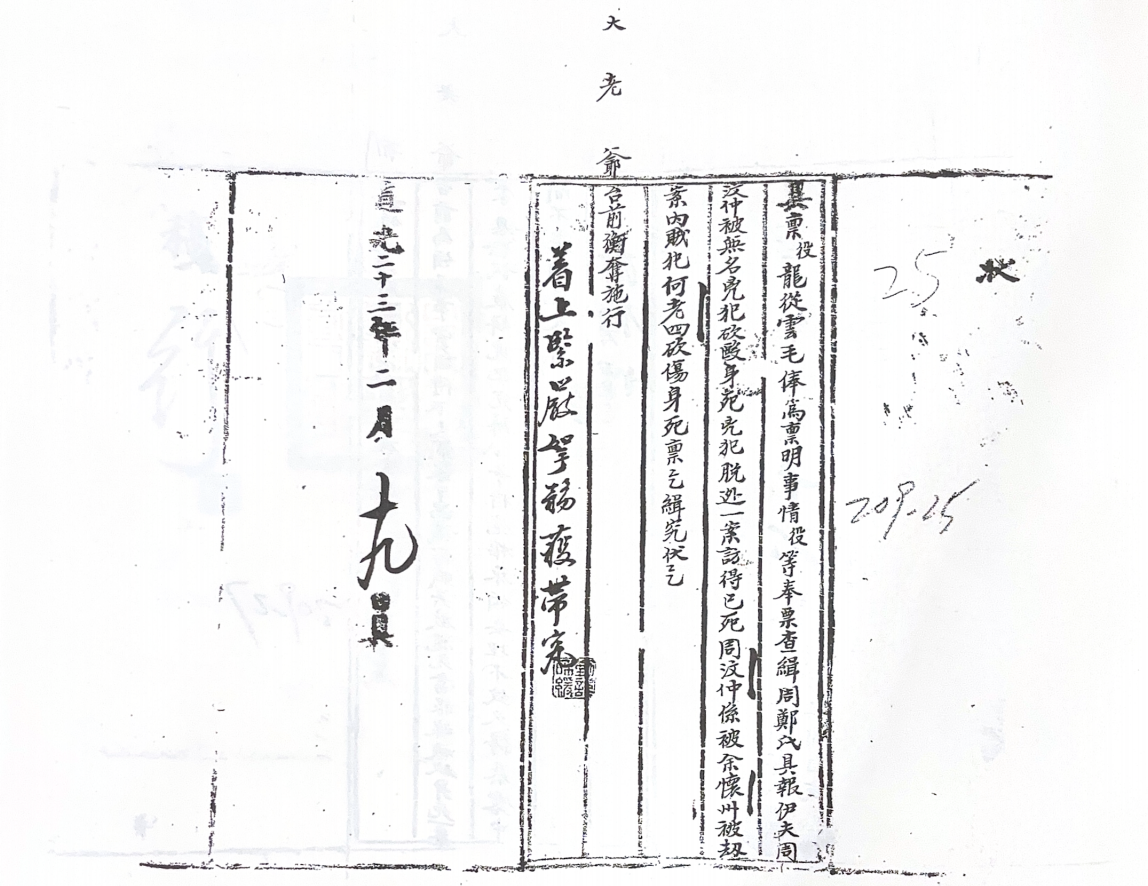 状
25
209-25
具禀役龍從雲毛俸為禀明事情役等奉票查緝周鄭氏具報伊夫周
汶仲被無名兇犯砍毆身死兇犯脱迯一案訪得已死周汶仲係被余懷州被刼
案内賊犯何老四砍傷身死禀乞緝究伏乞
大老爺台前衡奪施行
着上緊嚴拏務獲带究
道光二十三年二月十九日具